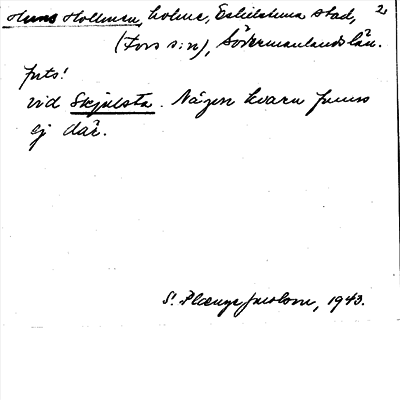 Hollmen, holme, Eskilstuna stad, 2
(Fors s:n), Södermanlands län.
forts!
vid Skjulsta. Någon kvarn finns
ej där.
S. Plænge Jacobson, 1943.